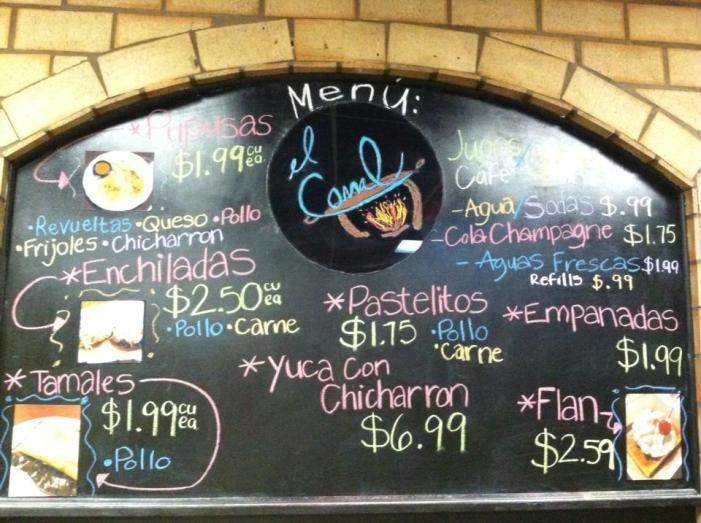 Menú:
el Comal
*Pupusas
$1.99 cu ea
•Revueltas •Queso •Pollo
•Frijoles •Chicharron
*Enchiladas
$2.50 cu ea
•Pollo •Carne
*Tamales
$1.99 cu ea
•Pollo
*Pastelitos
$1.75 •Pollo
•Carne
*Yuca Con
Chicharron
$6.99
Jugos
Café
-Agua/Sodas $.99
-Cola Champagne $1.75
-Aguas Frescas $1.99
Refills $.99
*Empanadas
$1.99
*Flan
$2.59